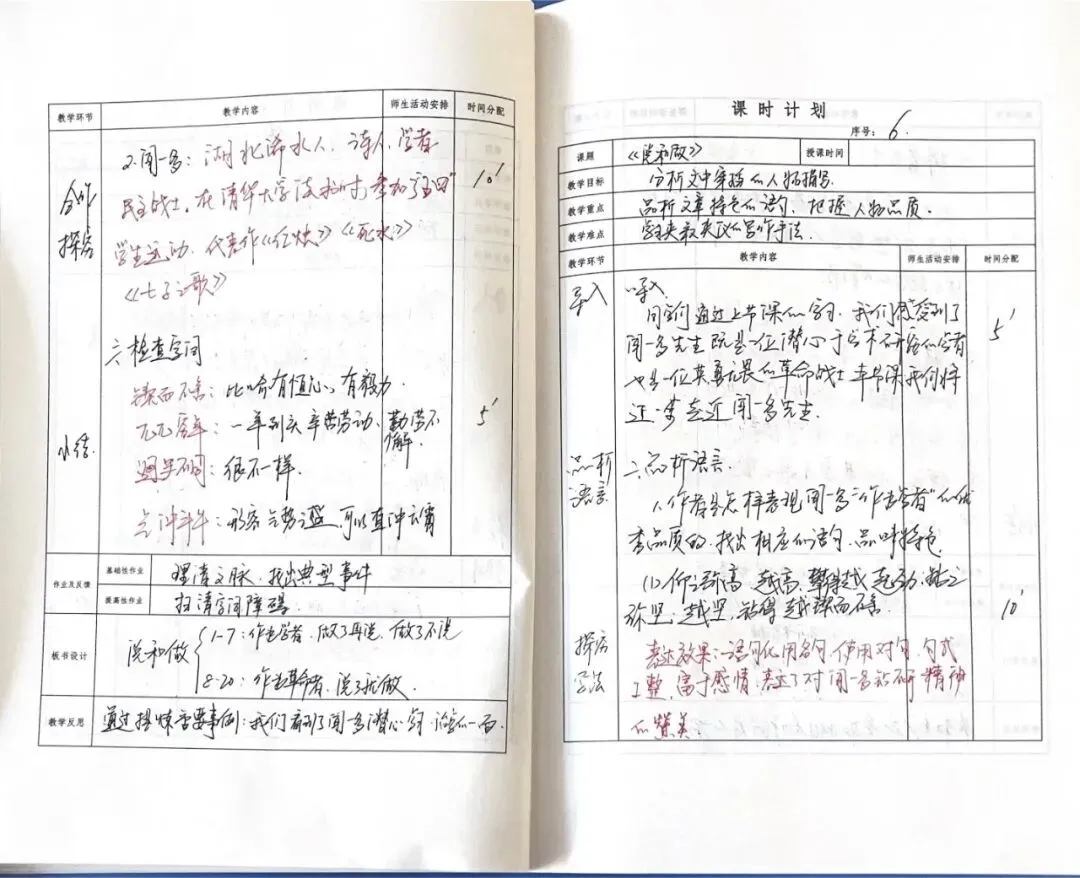 教学环节 教学内容 师生活动安排 时间分配
合作
探究
2.闻一多：湖北浠水人、诗人、学者
民主战士。在清华大学读书时参加了"五四"
学生运动，代表作《红烛》《死水》
《七子之歌》
10'
二、检查字词
锲而不舍：比喻有恒心，有毅力
兀兀穷年：一年到头辛苦劳动、勤劳不
懈。
迥乎不同：很不一样。
气冲斗牛：形容气势之盛，可以直冲云霄
小结
5'
作业及反馈
基础性作业 理清文脉、找出典型事件
提高性作业 扫清字词障碍
板书设计
说和做
1-7：作为学者，做了再说，做了不说
8-20：作为革命者，说了就做。
教学反思 通过提炼重要事例：我们看到了闻一多潜心 的一面.
课时计划
序号：6.
课题 《说和做》 授课时间
教学目标 分析文中 的人物描写
教学重点 品析文章特色的语句，把握人物品质.
教学难点 学习夹叙夹议的写作手法.
教学环节 教学内容 师生活动安排 时间分配
导入
一、导入
同学们通过上节课的学习，我们感受到了
闻一多先生既是一位潜心于学术 的学者
也是一位英勇无畏的革命战士 本节课我们将
进一步走近闻一多先生.
5'
品析
语言
二、品析语言.
1.作者是怎样表现闻一多"作为学者"的优
秀品质的，找出相应的语句，品味特色
(1).仰之弥高，越高，攀得越起劲；钻之
弥坚，越坚，钻得越锲而不舍.
10'
探究
学法
表达效果：语句化用名句，使用对句，句式
工整，富于感情，表达了对闻一多钻研精神
的赞美.